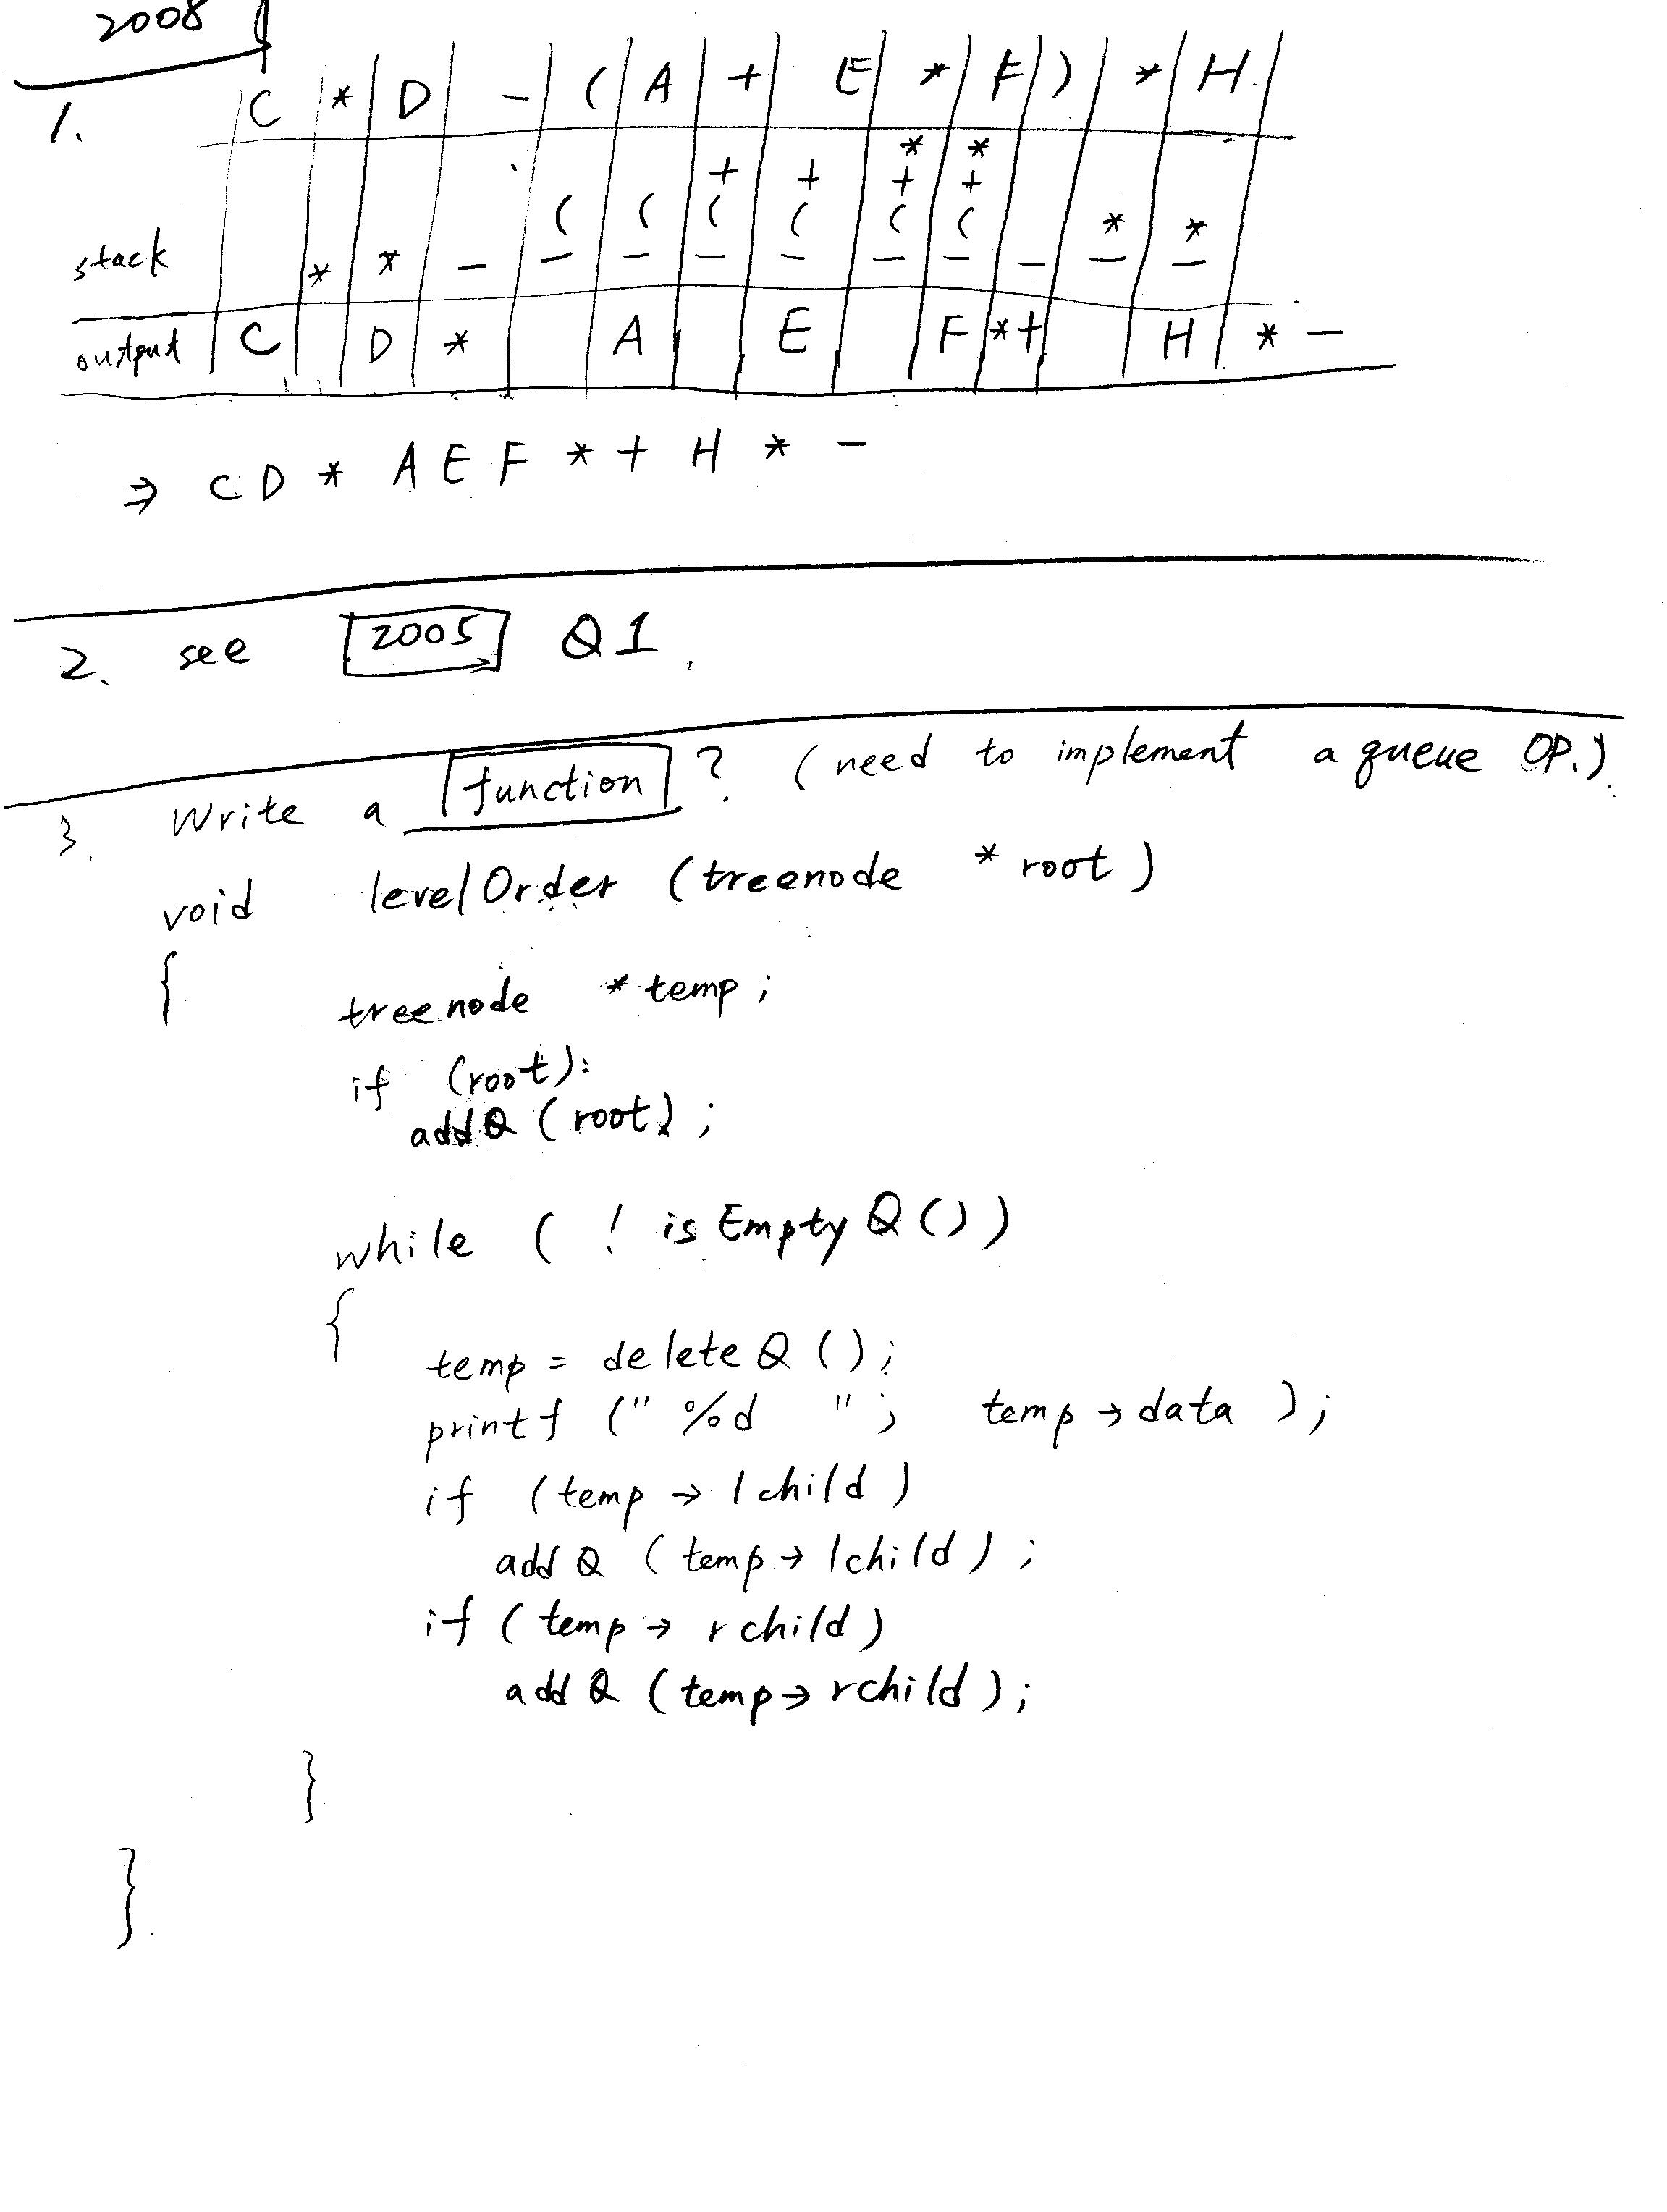 2008
1. C * D - ( A + E * F ) * H
* *
+ + + +
( ( ( ( ( ( * *
stack * * - - - - - - - - - -
output C D * A E F *+ H * -
⇒ C D * A E F * + H * -
2. see 2005 Q1.
3. Write a function ? (need to implement a queue OP.)
void levelOrder (treenode * root)
{
treenode * temp;
if (root):
addQ (root);
while ( ! isEmptyQ ())
{
temp = deleteQ ();
printf (" %d "; temp → data );
if (temp → lchild)
addQ (temp → lchild);
if (temp → rchild)
addQ (temp → rchild);
}
}